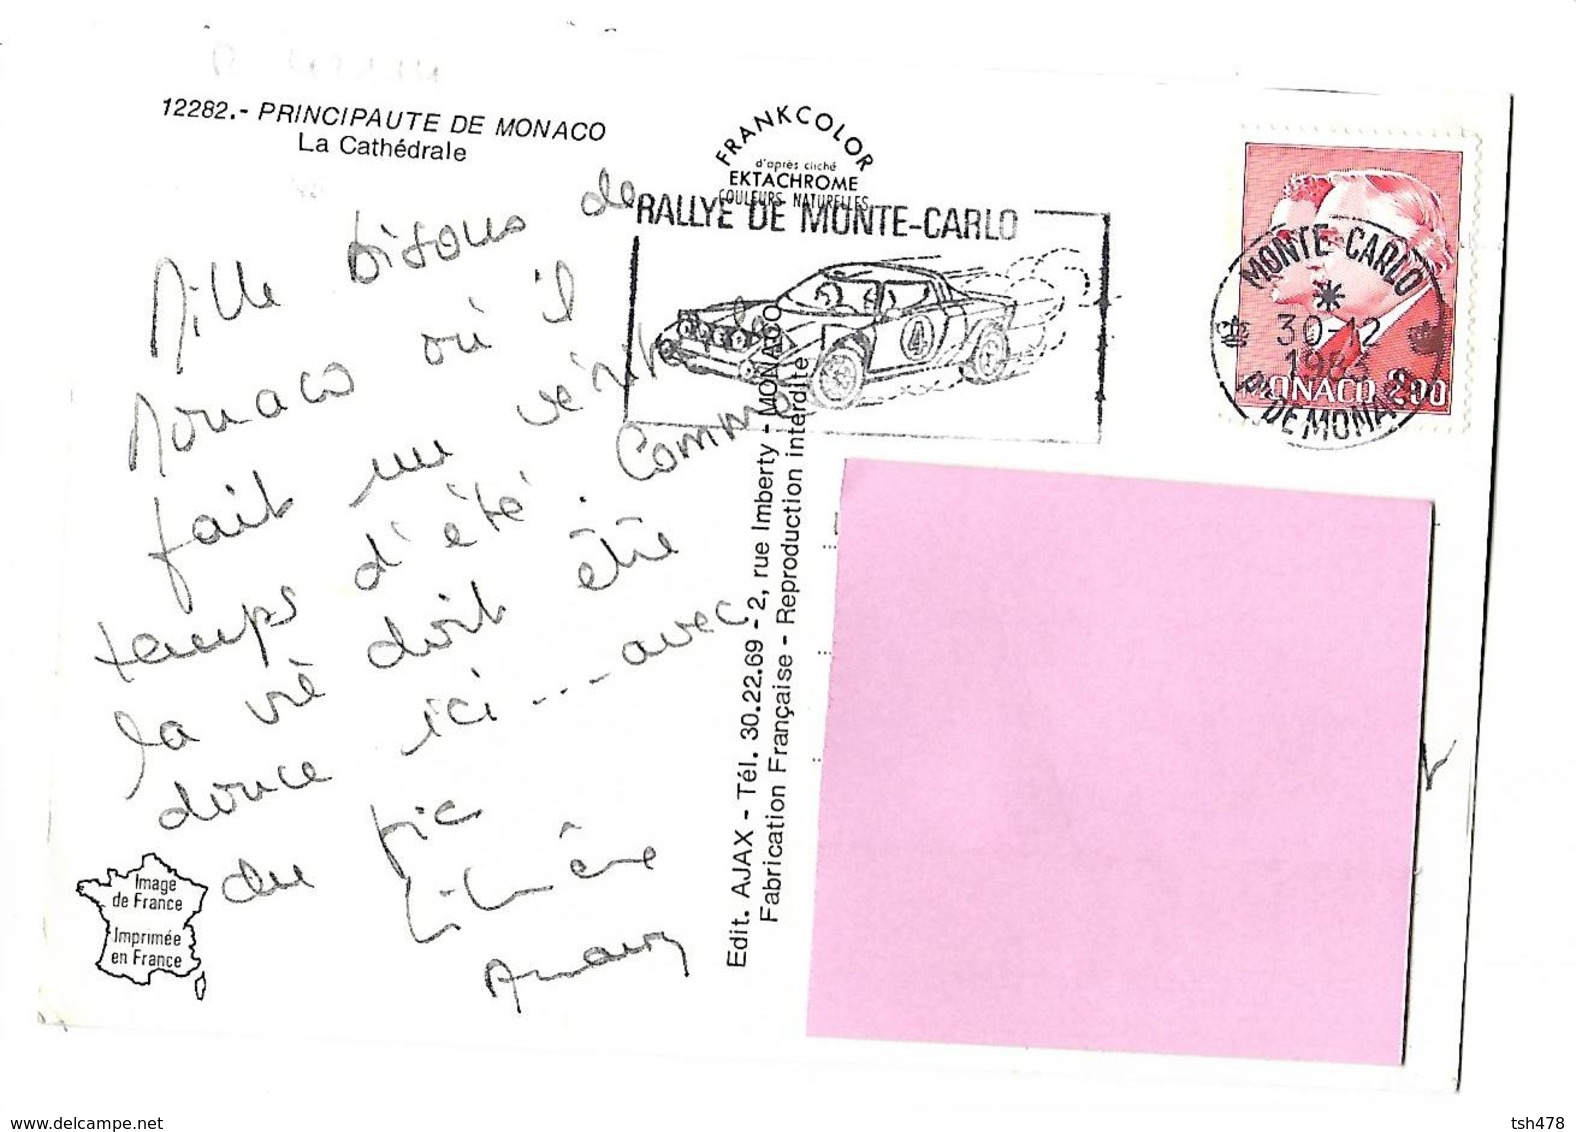 12282.- PRINCIPAUTE DE MONACO
La Cathédrale
FRANKCOLOR
d'après cliché
EKTACHROME
COULEURS NATURELLES
RALLYE DE MONTE-CARLO
4
MONTE-CARLO
30-12
1983
PTE DE MONACO
MONACO 2.00
Mille bisous de
Monaco où il
fait un véritable
temps d'été. Comme
la vie doit être
douce ici --- avec
du fric
Amaury
Image
de France
Imprimée
en France
Edit. AJAX - Tél. 30.22.69 - 2, rue Imberty - MONACO
Fabrication Française - Reproduction interdite
www.delcampe.net
tsh478